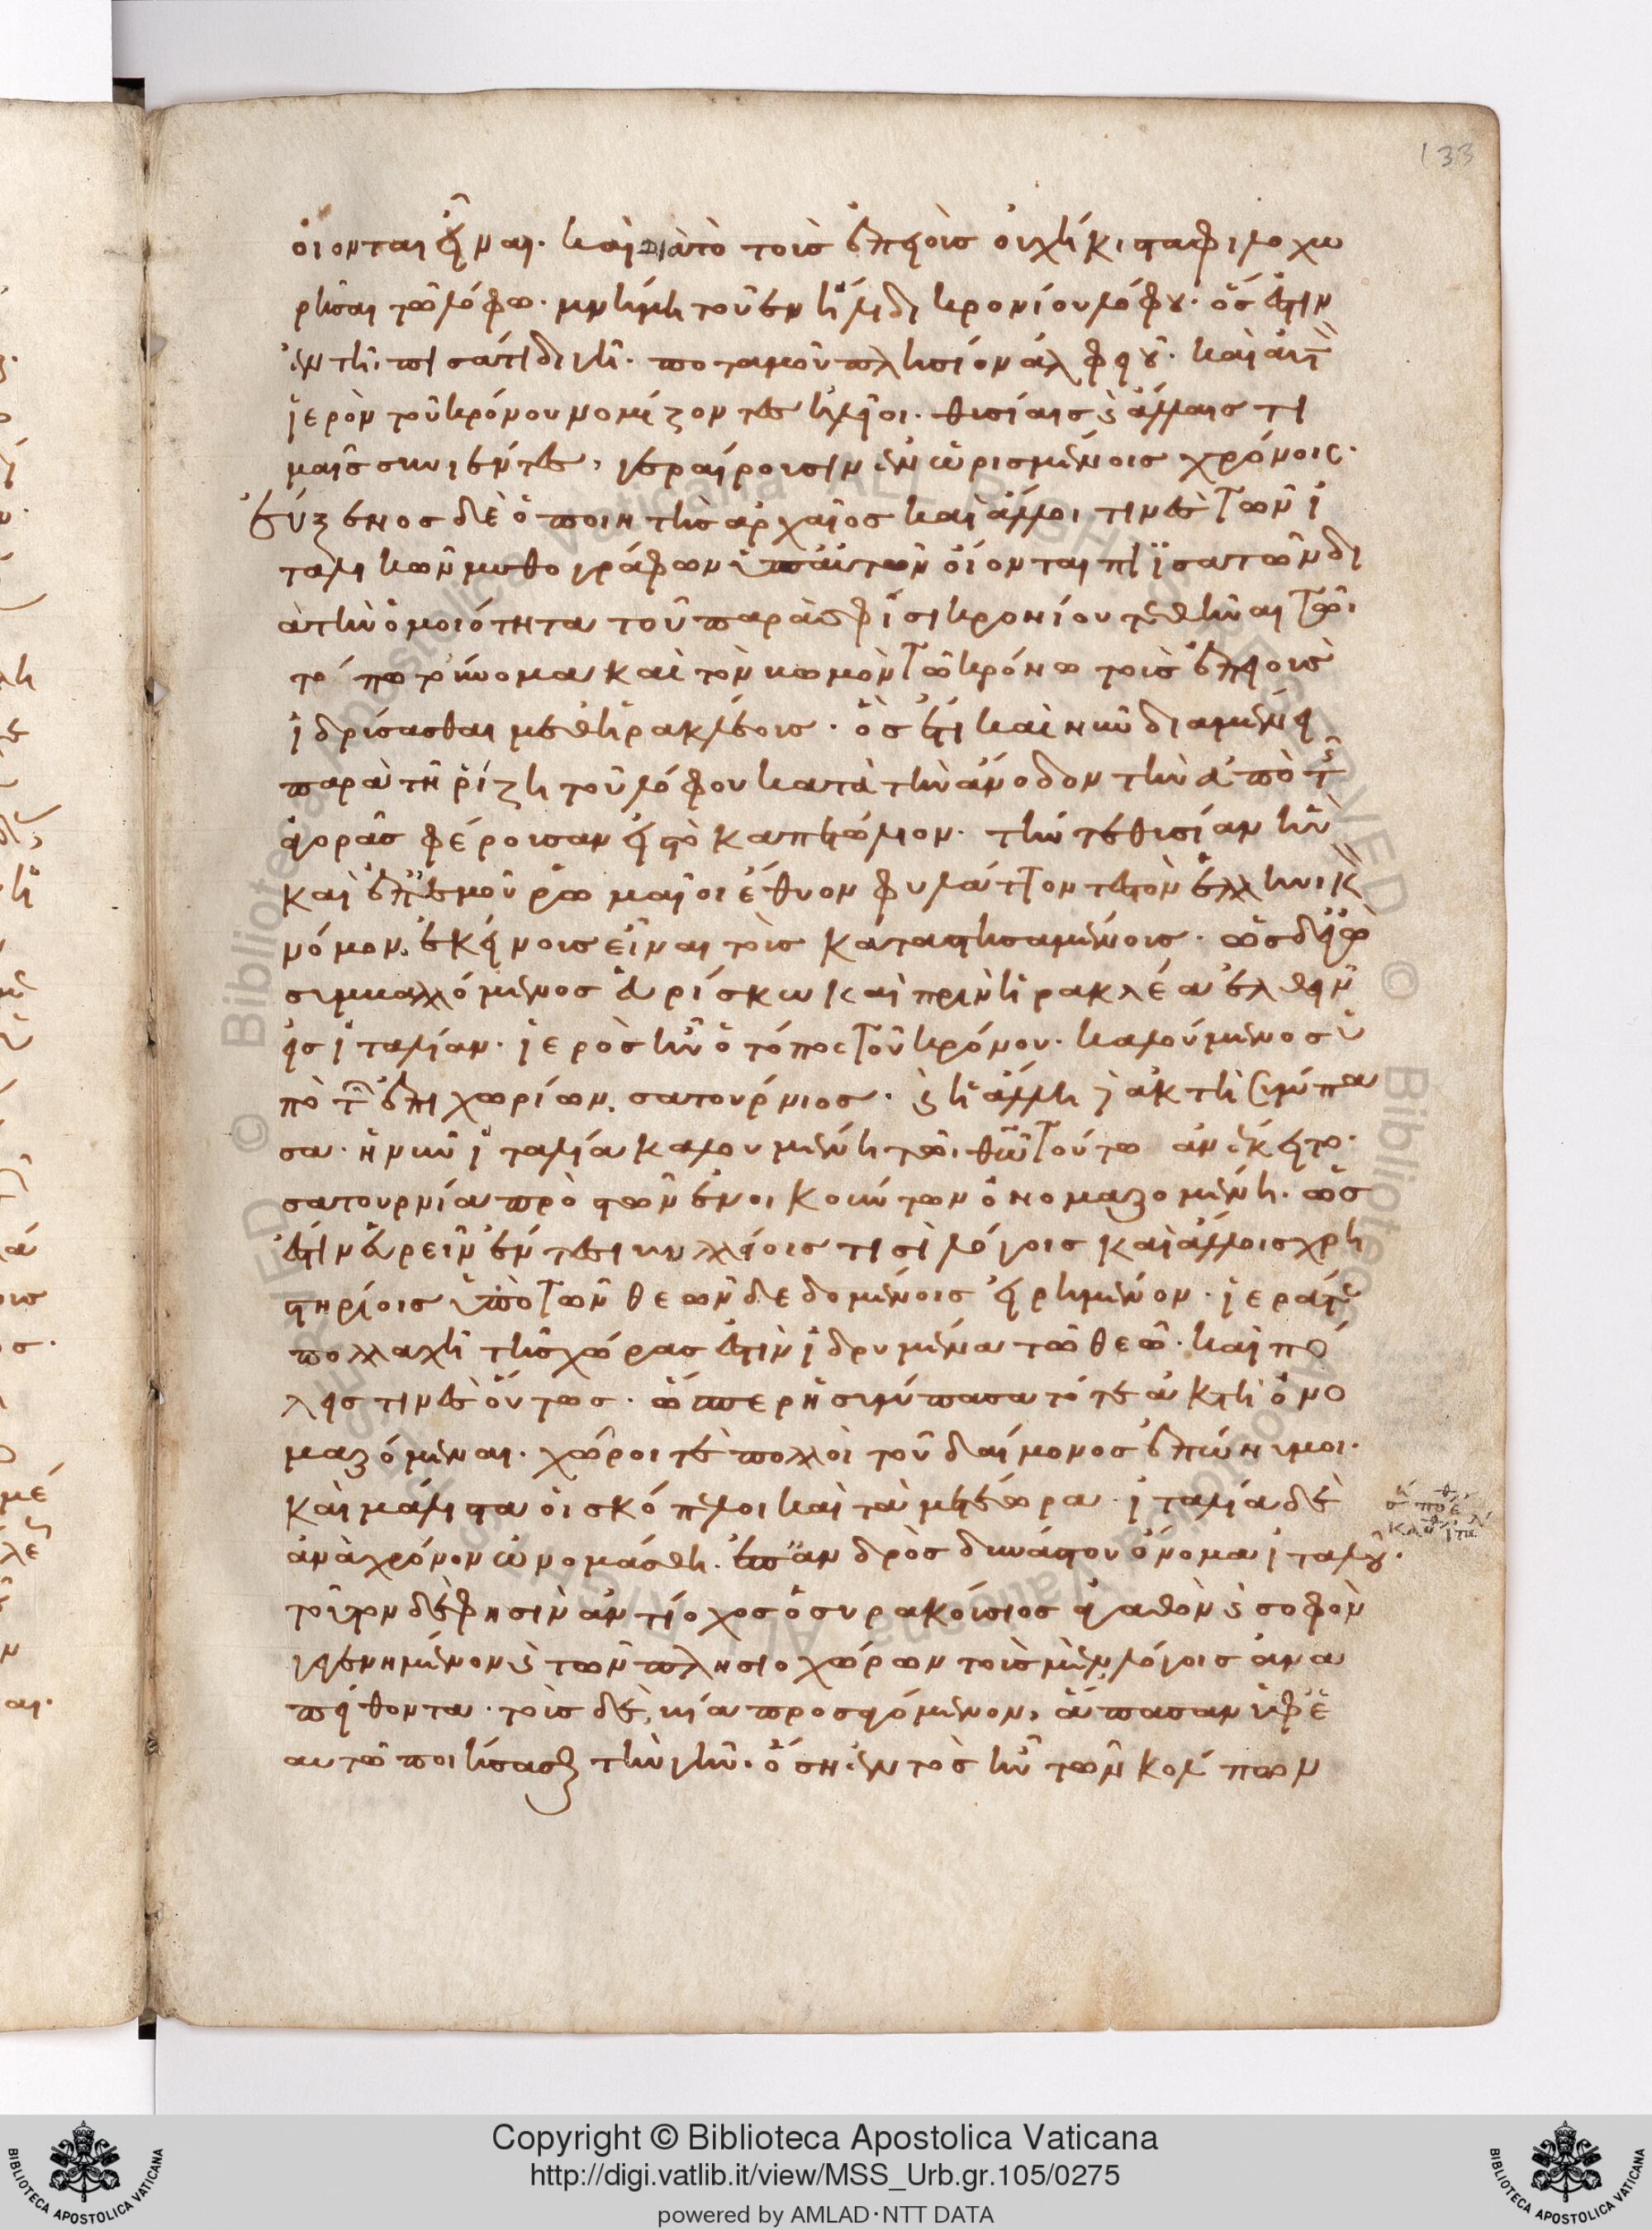 οἴονται εἶναι· καὶ διὰ τὸ τοῖς ἐπειοῖς οὐχ ἥκιστα φιλοχω
ρῆσαι τῶ λόφω· μνήμη τοῦ ἐν ἤλιδι κρονίου λόφου· ὅς ἐστιν
ἐν τῆι πισάτιδι γῆ· ποταμοῦ πλησίον ἀλφειοῦ· καὶ αὐτὸν
ἱερὸν τοῦ κρόνου νομίζοντες ἠλεῖοι· θυσίαις καὶ ἄλλαις τι
μαῖς συνιέντες, γεραίρουσιν ἐν ὡρισμένοις χρόνοις·
εὔξενος δὲ ὁ ποιητὴς ἀρχαῖος καὶ ἄλλοι τινὲς τῶν ἰ
ταλικῶν μυθογράφων ὑπ' αὐτῶν οἴονται πισατῶν δι
ὰ τὴν ὁμοιότητα τοῦ παρὰ σφίσι κρονίου τεθῆναι τῶι
τόπω τοὔνομα καὶ τὸν βωμὸν τῶ κρόνω τοὺς ἐπειοὺς
ἱδρύσασθαι μεθ' ἡρακλέους· ὃς ἔτι καὶ νῦν διαμένει
παρὰ τῆ ῥίζη τοῦ λόφου κατὰ τὴν ἄνοδον τὴν ἀπὸ τῆς
ἀγορᾶς φέρουσαν εἰς τὸ καπιτώλιον· τήν τε θυσίαν ἣν
καὶ ἐπ' ἐμοῦ ῥωμαῖοι ἔθυον φυλάττοντες τὸν ἑλληνικὸν
νόμον, ἐκείνους εἶναι τοὺς καταστησαμένους· ὡς δ' ἐγὼ
συμβαλλόμενος εὑρίσκω καὶ πρὶν ἡρακλέα ἐλθεῖν
εἰς ἰταλίαν· ἱερὸς ἦν ὁ τόπος τοῦ κρόνου· καλούμενος ὑ
πὸ τῶν ἐπιχωρίων, σατούρνιος· καὶ ἡ ἄλλη δὲ ἀκτὴ σύμπα
σα· ἡ νῦν ἰταλία καλουμένη τῶι θεῶ τούτω ἀνέκειτο·
σατουρνία πρὸ τῶν ἐνοικούντων ὀνομαζομένη· ὡς
ἔστιν εὑρεῖν ἔν τε σιβυλλείοις τισὶ λόγοις καὶ ἄλλοις χρη
στηρίοις ὑπὸ τῶν θεῶν δεδομένοις εἰρημένον· ἱερά τε
πολλαχῆ τῆς χώρας ἐστὶν ἱδρυμένα τῶ θεῶ· καὶ πό
λεις τινὲς οὕτως· ὥσπερ ἡ σύμπασα τότε ἀκτὴ ὀνο
μαζόμεναι· χῶροί τε πολλοὶ τοῦ δαίμονος ἐπώνυμοι·
καὶ μάλιστα οἱ σκόπελοι καὶ τὰ μετέωρα· ἰταλία δὲ
ἀνὰ χρόνον ὠνομάσθη· ἐπ' ἀνδρὸς δυνάστου ὄνομα ἰταλοῦ·
τοῦτον δέ φησιν ἀντίοχος ὁ συρακούσιος ἀγαθὸν καὶ σοφὸν
γεγενημένον καὶ τῶν πλησιοχώρων τοὺς μὲν λόγοις ἀνα
πείθοντα· τοὺς δὲ, βία προσαγόμενον, ἅπασαν ὑφ' ἑ
αυτῶ ποιήσασθαι τὴν γῆν· ὅση ἐντὸς ἦν τῶν κόλπων